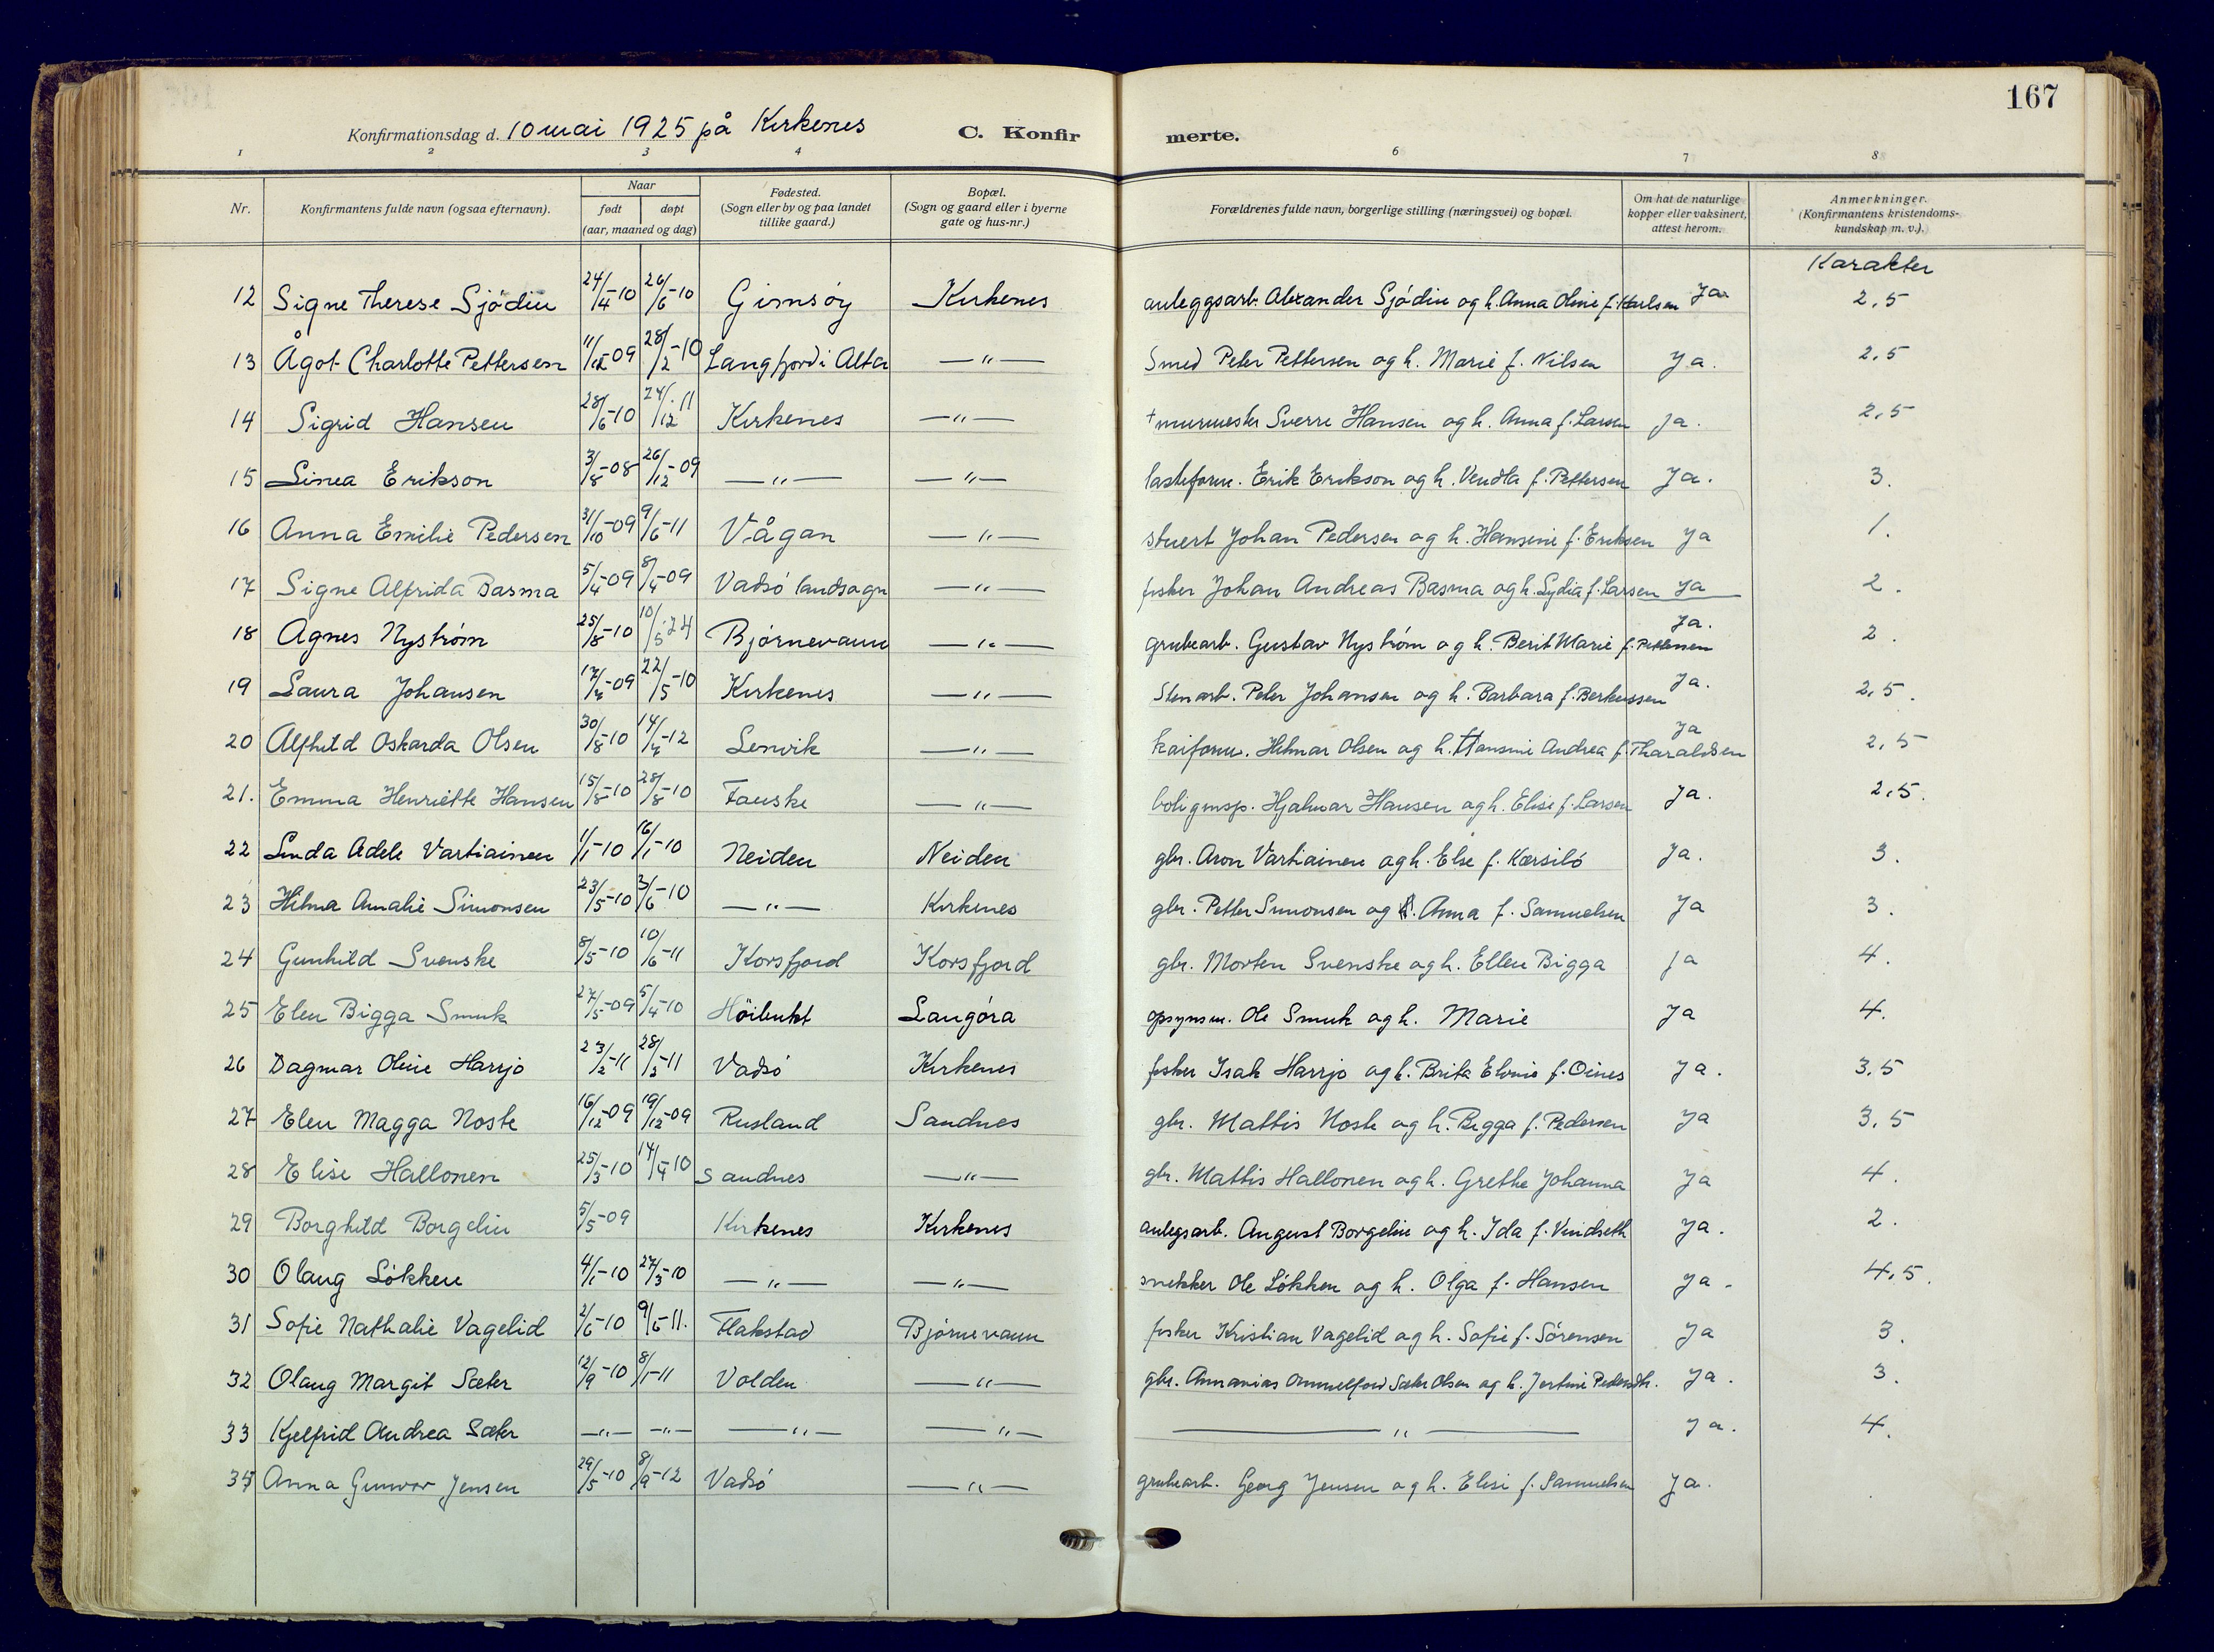 167
Konfirmationsdag d. 10 mai 1925 på Kirkenes C. Konfirmerte.
1 2 3 4 6 7 8
Nr. Konfirmantens fulde navn (ogsaa efternavn). Naar født døpt (aar, maaned og dag) Fødested. (Sogn eller by og paa landet tillike gaard.) Bopæl. (Sogn og gaard eller i byerne gate og hus-nr.) Forældrenes fulde navn, borgerlige stilling (næringsvei) og bopæl. Om hat de naturlige kopper eller vaksinert, attest herom. Anmerkninger. (Konfirmantens kristendomskundskap m. v.).
Karakter
12 Signe Therese Sjödin 24/4-10 26/6-10 Gimsöy Kirkenes anleggsarb. Alexander Sjödin og h. Anna Oline f. Karlsen Ja 2,5
13 Ågot Charlotte Pettersen 11/12-09 28/2-10 Langfjord i Alta —"— Smed Peter Pettersen og h. Marie f. Nilsen Ja. 2,5
14 Sigrid Hansen 28/6-10 24/12-11 Kirkenes —"— + murmester Sverre Hansen og h. Anna f. Larsen Ja. 2,5
15 Linea Erikson 3/8-08 26/12-09 —"— —"— lasteform. Erik Erikson og h. Vendla f. Pettersen Ja. 3.
16 Anna Emilie Pedersen 31/10-09 9/6-11 Vågan —"— stuert Johan Pedersen og h. Hansine f. Eriksen Ja 1.
17 Signe Alfrida Basma 5/4-09 8/4-09 Vadsö landsogn —"— fisker Johan Andreas Basma og h. Lydia f. Larsen Ja 2.
18 Agnes Nyström 25/8-10 10/5-24 Björnevann —"— grubearb. Gustav Nyström og h. Berit Marie f. Pettersen Ja. 2.
19 Laura Johansen 17/4-09 22/5-10 Kirkenes —"— Stenarb. Peter Johansen og h. Barbara f. Berkussen Ja. 2,5.
20 Alfhild Oskarda Olsen 30/8-10 14/4-12 Lenvik —"— kaiform. Hilmar Olsen og h. Hansine Andrea f. Tharaldsen Ja 2,5
21. Emma Henriette Hansen 15/8-10 28/8-10 Fauske —"— boliginsp. Hjalmar Hansen og h. Elise f. Larsen Ja. 2,5.
22 Linda Adele Vartiainen 1/1-10 16/1-10 Neiden Neiden gbr. Aron Vartiainen og h. Else f. Karsilö Ja. 3.
23 Hilma Amalie Simonsen 23/5-10 3/6-10 —"— Kirkenes gbr. Petter Simonsen og h. Anna f. Samuelsen Ja 3.
24 Gunhild Svenske 8/5-10 10/6-11 Korsfjord Korsfjord gbr. Morten Svenske og h. Ellen Bigga Ja 4.
25 Elen Bigga Smuk 27/5-09 5/4-10 Höibukt Langöra opsynsm. Ole Smuk og h. Marie Ja 4.
26 Dagmar Oline Harrjo 23/2-11 28/3-11 Vadsö Kirkenes fisker Isak Harrjo og h. Brita f. Oines Ja. 3.5
27 Elen Magga Noste 16/12-09 19/12-09 Rusland Sandnes gbr. Mattis Noste og h. Bigga f. Pedersen Ja 3,5
28 Elise Hallonen 25/3-10 14/4-10 Sandnes —"— gbr. Mattis Hallonen og h. Grethe Johanna Ja 4.
29 Borghild Borgelin 5/5-09 Kirkenes Kirkenes anlegsarb. August Borgelin og h. Ida f. Vindseth Ja. 2.
30 Olaug Lökken 4/1-10 27/3-10 —"— —"— snekker Ole Lökken og h. Olga f. Hansen Ja. 4,5.
31 Sofie Nathalie Vagelid 2/6-10 9/6-11. Flakstad Björnevann fisker Kristian Vagelid og h. Sofie f. Sörensen Ja 3.
32 Olaug Margit Sæter 12/9-10 8/1-11 Volden —"— gbr. Annanias Sæter Olsen og h. Jertine Pedersdtr. Ja. 3.
33 Kjelfrid Andrea Sæter —"— —"— —"— —"— —"— Ja. 4.
34 Anna Gunvor Jensen 29/5-10 8/9-12 Vadsö —"— grubearb. Georg Jensen og h. Elise f. Samuelsen Ja.